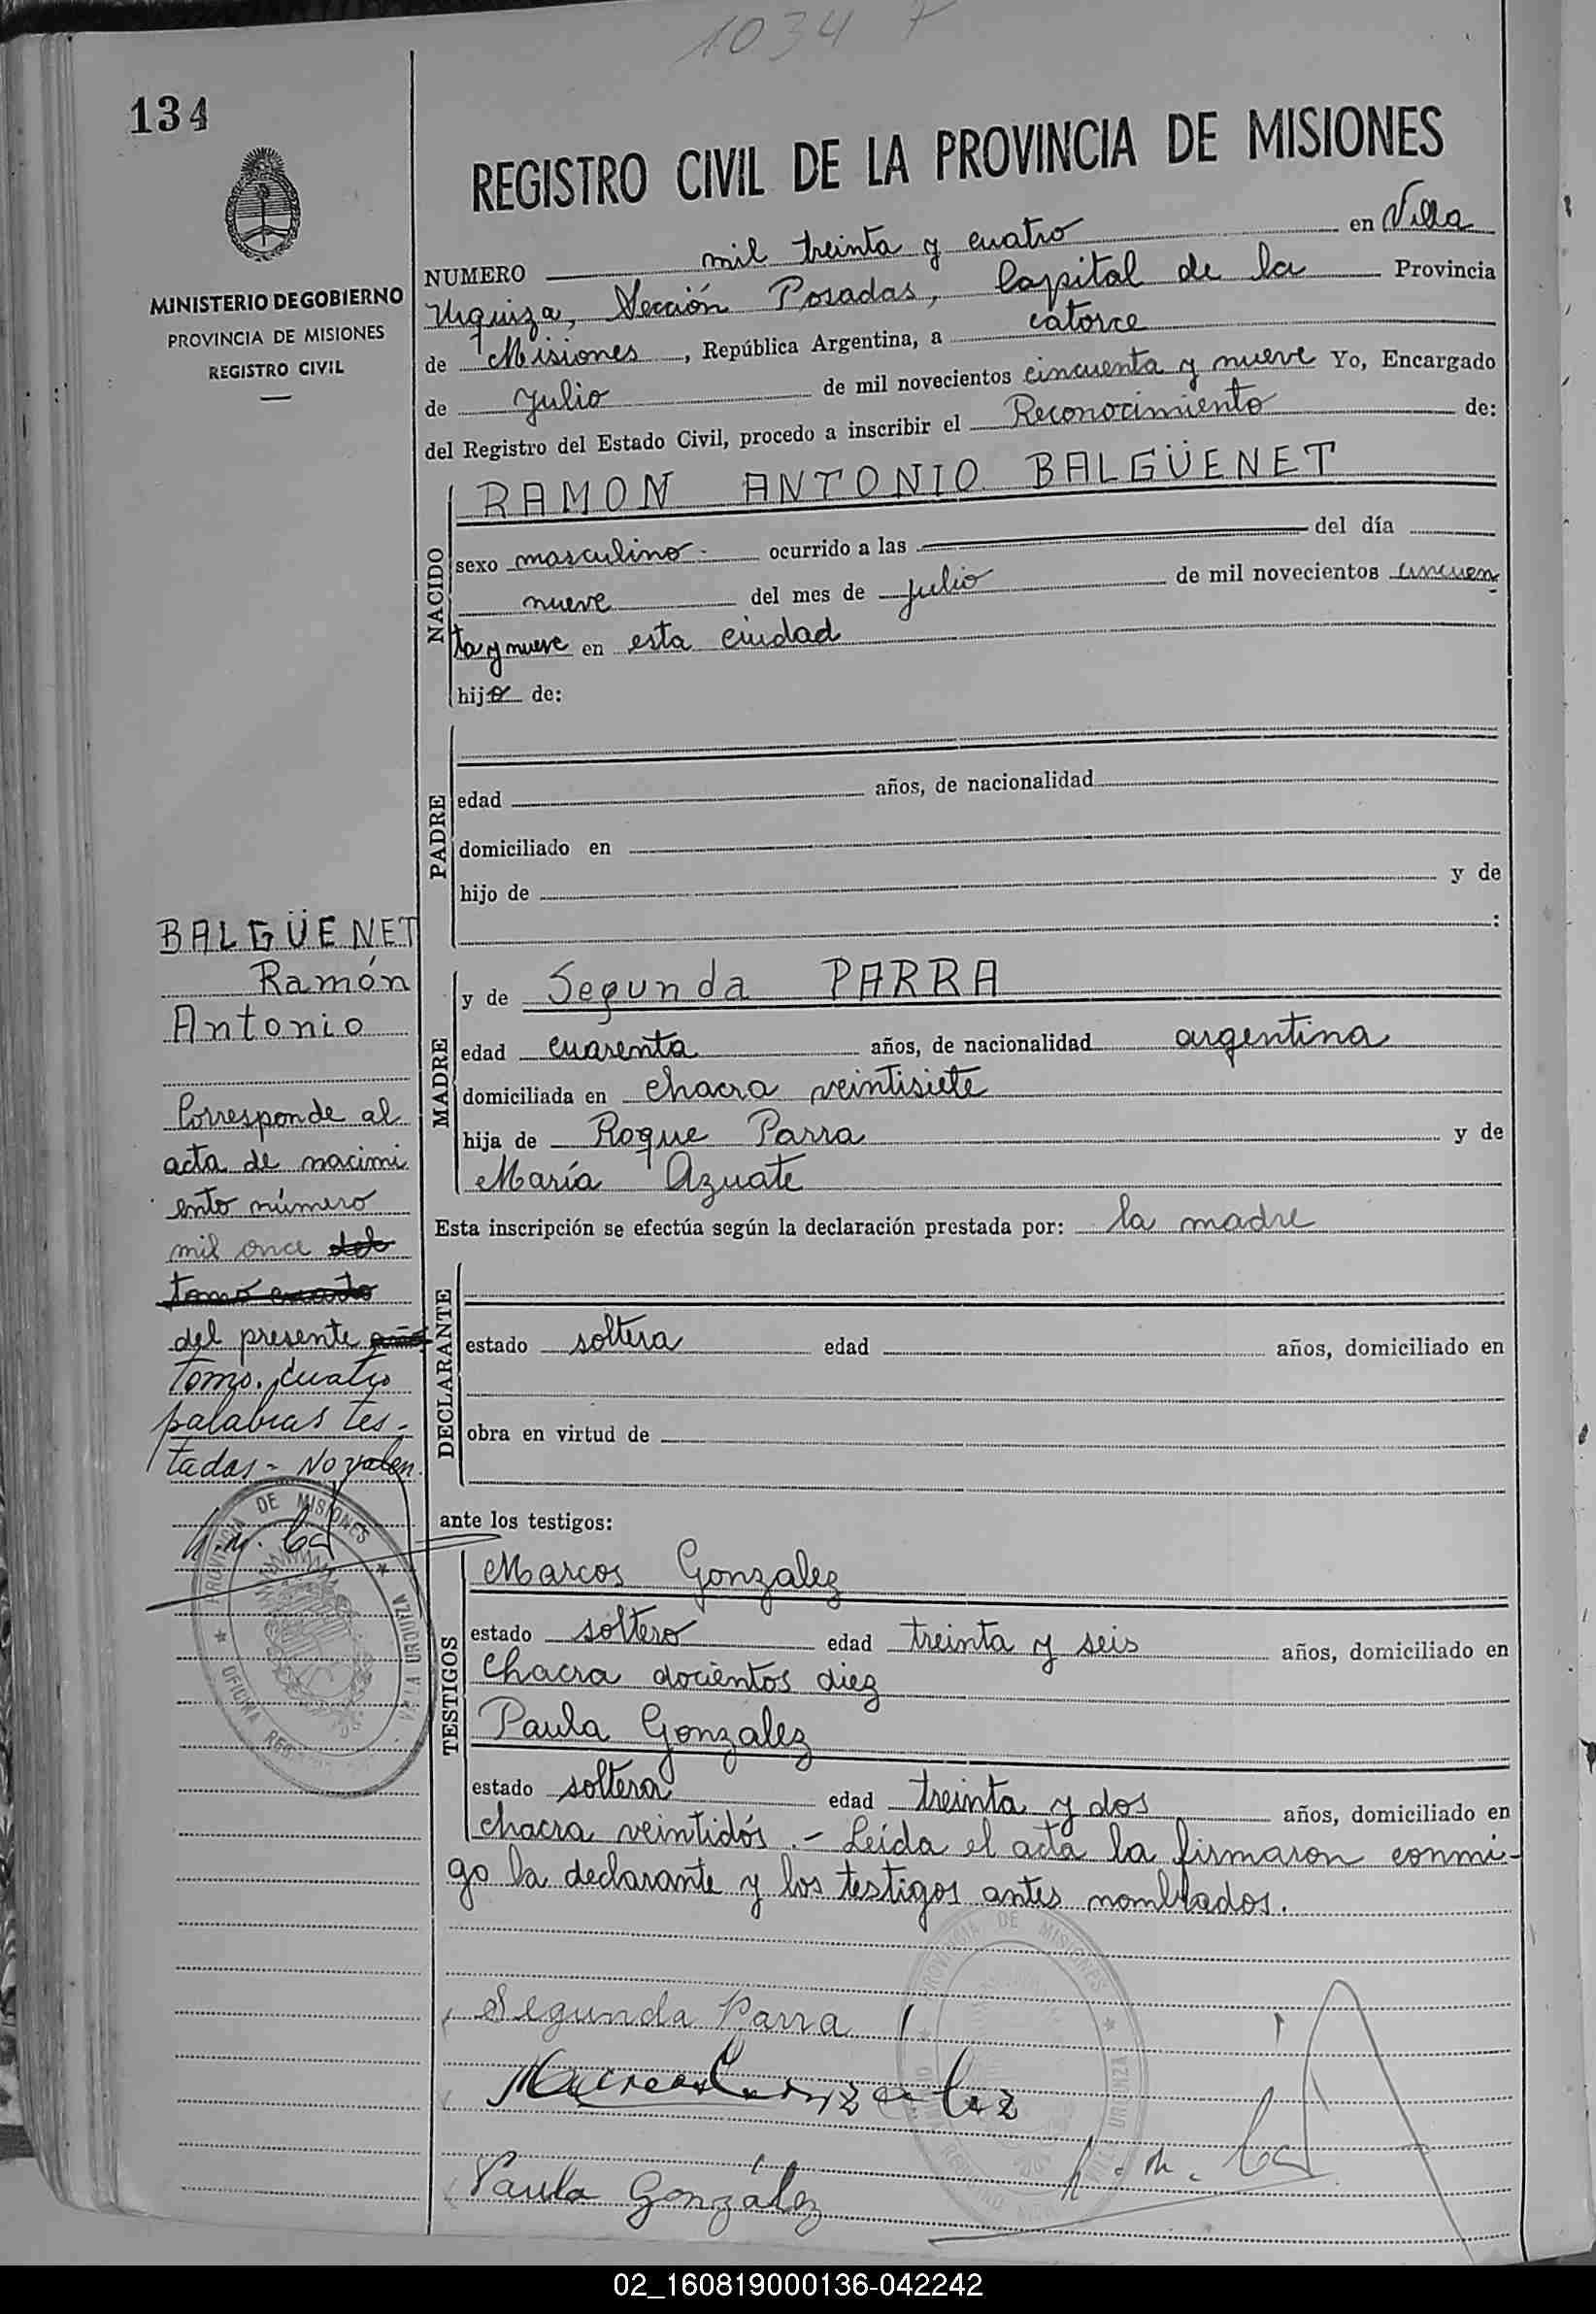 1034
134
MINISTERIO DE GOBIERNO
PROVINCIA DE MISIONES
REGISTRO CIVIL
REGISTRO CIVIL DE LA PROVINCIA DE MISIONES
NUMERO mil treinta y cuatro en Villa
Urquiza, Sección Posadas, Capital de la Provincia
de Misiones, República Argentina, a catorce
de Julio de mil novecientos cincuenta y nueve Yo, Encargado
del Registro del Estado Civil, procedo a inscribir el Reconocimiento de:
NACIDO
RAMON ANTONIO BALGÜENET
sexo masculino.- ocurrido a las del día
nueve del mes de julio de mil novecientos cincuen
ta y nueve en esta ciudad
hijo de:
PADRE
edad años, de nacionalidad
domiciliado en
hijo de y de
:
BALGÜENET
Ramón
Antonio
Corresponde al
acta de nacimi
ento número
mil once del
tomo cuarto
del presente año
Tomo. Cuatro
palabras tes-
tadas - No valen.
MADRE
y de Segunda PARRA
edad cuarenta años, de nacionalidad argentina
domiciliada en chacra veintisiete
hija de Roque Parra y de
María Azuate
Esta inscripción se efectúa según la declaración prestada por: la madre
DECLARANTE
estado soltera edad años, domiciliado en
obra en virtud de
ante los testigos:
TESTIGOS
Marcos Gonzalez
estado soltero edad treinta y seis años, domiciliado en
Chacra docientos diez
Paula Gonzalez
estado soltera edad treinta y dos años, domiciliado en
chacra veintidós.- Leída el acta la firmaron conmi-
go la declarante y los testigos antes nombrados.
PROVINCIA DE MISIONES
OFICINA
VILLA URQUIZA
PROVINCIA DE MISIONES
VILLA URQUIZA
Segunda Parra
Marcos Gonzalez
Paula González
02_160819000136-042242